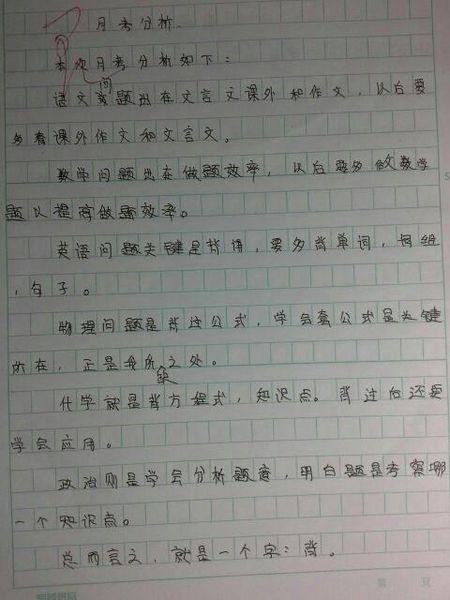 月考分析
本次月考分析如下：
语文问题出在文言文课外和作文，以后要
多看课外作文和文言文。
数学问题出在做题效率，以后要多做数学
题以提高做题效率。
英语问题关键是背诵，要多背单词，词组
，句子。
物理问题是背过公式，学会套公式是关键
所在，正是我所缺之处。
化学就是背方程式，知识点。背过后还要
学会应用。
政治则是学会分析题意，明白题是考察哪
一个知识点。
总而言之，就是一个字：背。